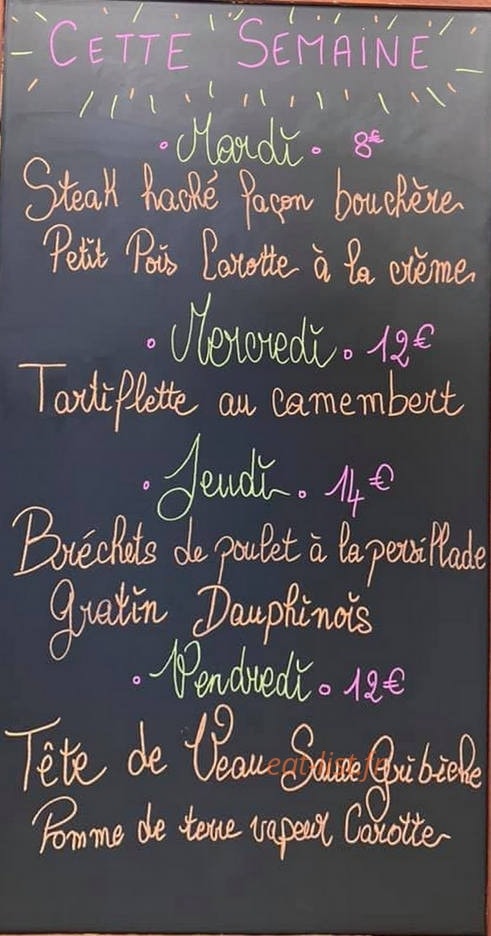 CETTE SEMAINE
• Mardi • 8€
Steak haché façon bouchère
Petit Pois Carotte à la crème
• Mercredi • 12€
Tartiflette au camembert
• Jeudi • 14€
Bréchets de poulet à la persillade
gratin Dauphinois
• Vendredi • 12€
Tête de Veau Sauce Gribiche
eat-list.fr
Pomme de terre vapeur Carotte